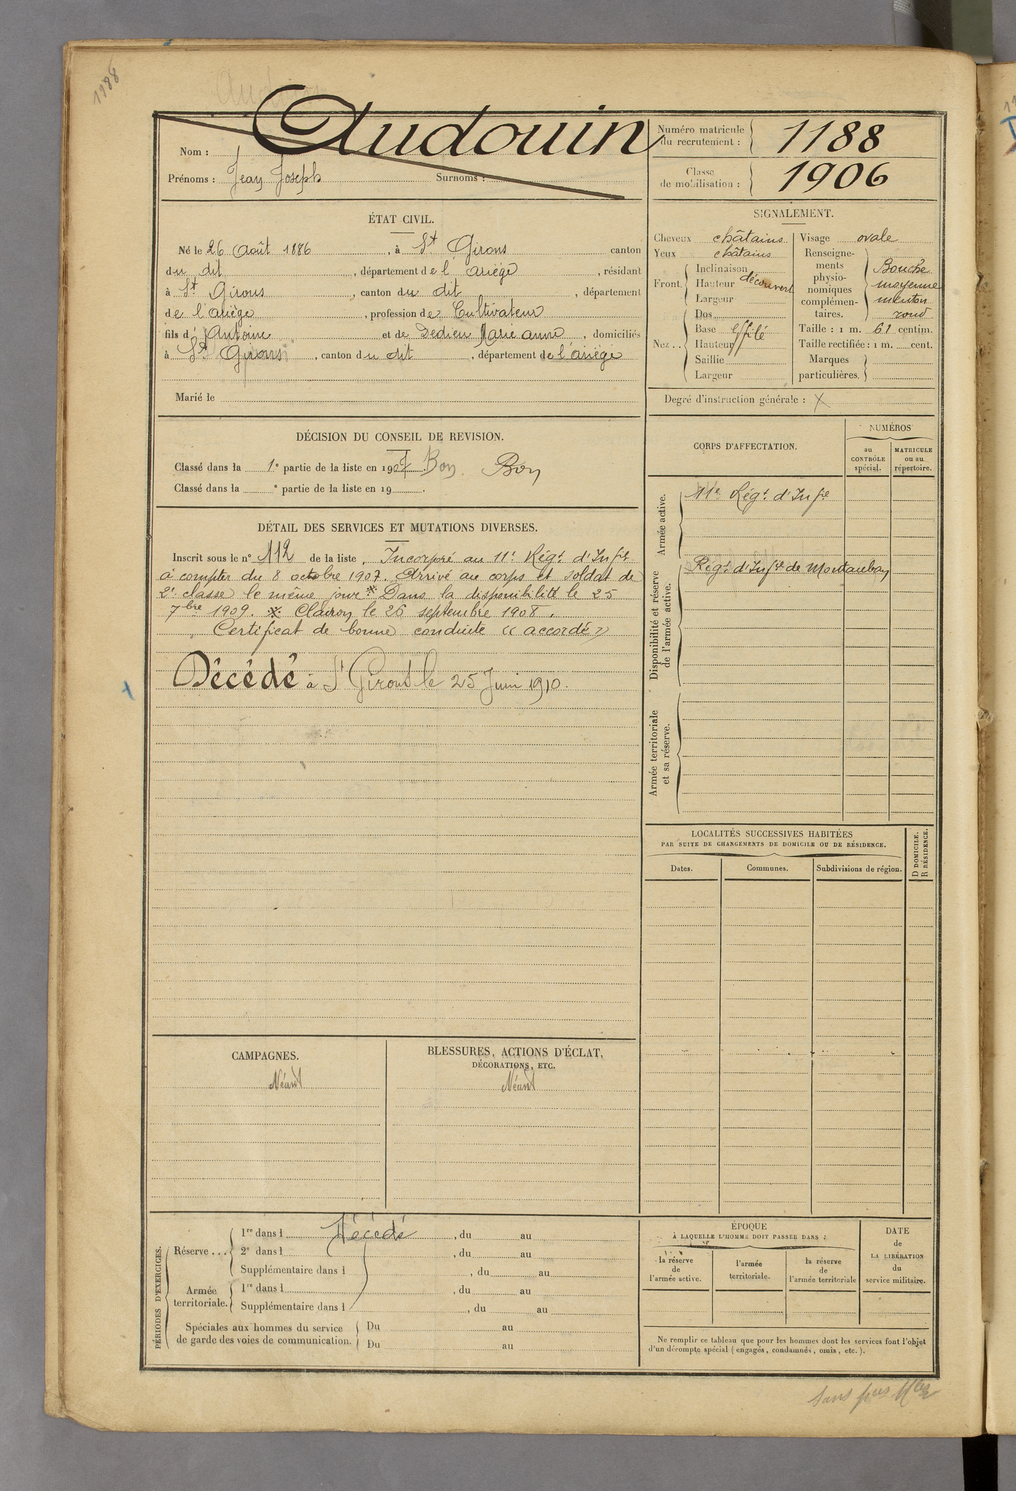 1188
Audouin
Nom :
Prénoms : Jean Joseph Surnoms :
Numéro matricule du recrutement : 1188
Classe de mobilisation : 1906
ÉTAT CIVIL.
Né le 26 Août 1886, à St Girons canton
du dit, département de l'Ariège, résidant
à St Girons, canton du dit, département
de l'Ariège, profession de Cultivateur
fils d'Antoine et de Dedieu Marie anne, domiciliés
à St Girons, canton du dit, département de l'Ariège
Marié le
SIGNALEMENT.
Cheveux châtains
Yeux châtains
Front. Inclinaison
Hauteur découvert
Largeur
Nez.. Dos
Base effilé
Hauteur
Saillie
Largeur
Visage ovale
Renseignements physionomiques complémentaires. Bouche
moyenne
menton
rond
Taille : 1 m. 61 centim.
Taille rectifiée : 1 m. cent.
Marques particulières.
Degré d'instruction générale : X
DÉCISION DU CONSEIL DE REVISION.
Classé dans la 1e partie de la liste en 1907. Bon Bon
Classé dans la e partie de la liste en 19 .
CORPS D'AFFECTATION.
NUMÉROS
au CONTRÔLE spécial.
MATRICULE ou au répertoire.
Armée active.
11e Régt d'Infie
Disponibilité et réserve de l'armée active.
Régt d'Infie de Montauban
Armée territoriale et sa réserve.
DÉTAIL DES SERVICES ET MUTATIONS DIVERSES.
Inscrit sous le n° 112 de la liste. Incorporé au 11e Régt d'Infie
à compter du 8 octobre 1907. Arrivé au corps et soldat de
2e classe le même jour.※ Dans la disponibilité le 25
7bre 1909. ※ Clairon le 26 septembre 1908.
Certificat de bonne conduite « accordé »
Décédé à St Girons le 25 Juin 1910.
LOCALITÉS SUCCESSIVES HABITÉES
PAR SUITE DE CHANGEMENTS DE DOMICILE OU DE RÉSIDENCE.
Dates.
Communes.
Subdivisions de région.
D DOMICILE.
R RÉSIDENCE.
CAMPAGNES.
Néant
BLESSURES, ACTIONS D'ÉCLAT,
DÉCORATIONS, ETC.
Néant
PÉRIODES D'EXERCICES.
Réserve ... 1re dans l Décédé, du au
2e dans l , du au
Supplémentaire dans l , du au
Armée territoriale. 1re dans l , du au
Supplémentaire dans l , du au
Spéciales aux hommes du service de garde des voies de communication. Du au
Du au
ÉPOQUE
À LAQUELLE L'HOMME DOIT PASSER DANS :
la réserve de l'armée active.
l'armée territoriale.
la réserve de l'armée territoriale
DATE de LA LIBÉRATION du service militaire.
Ne remplir ce tableau que pour les hommes dont les services font l'objet
d'un décompte spécial (engagés, condamnés, omis, etc.).